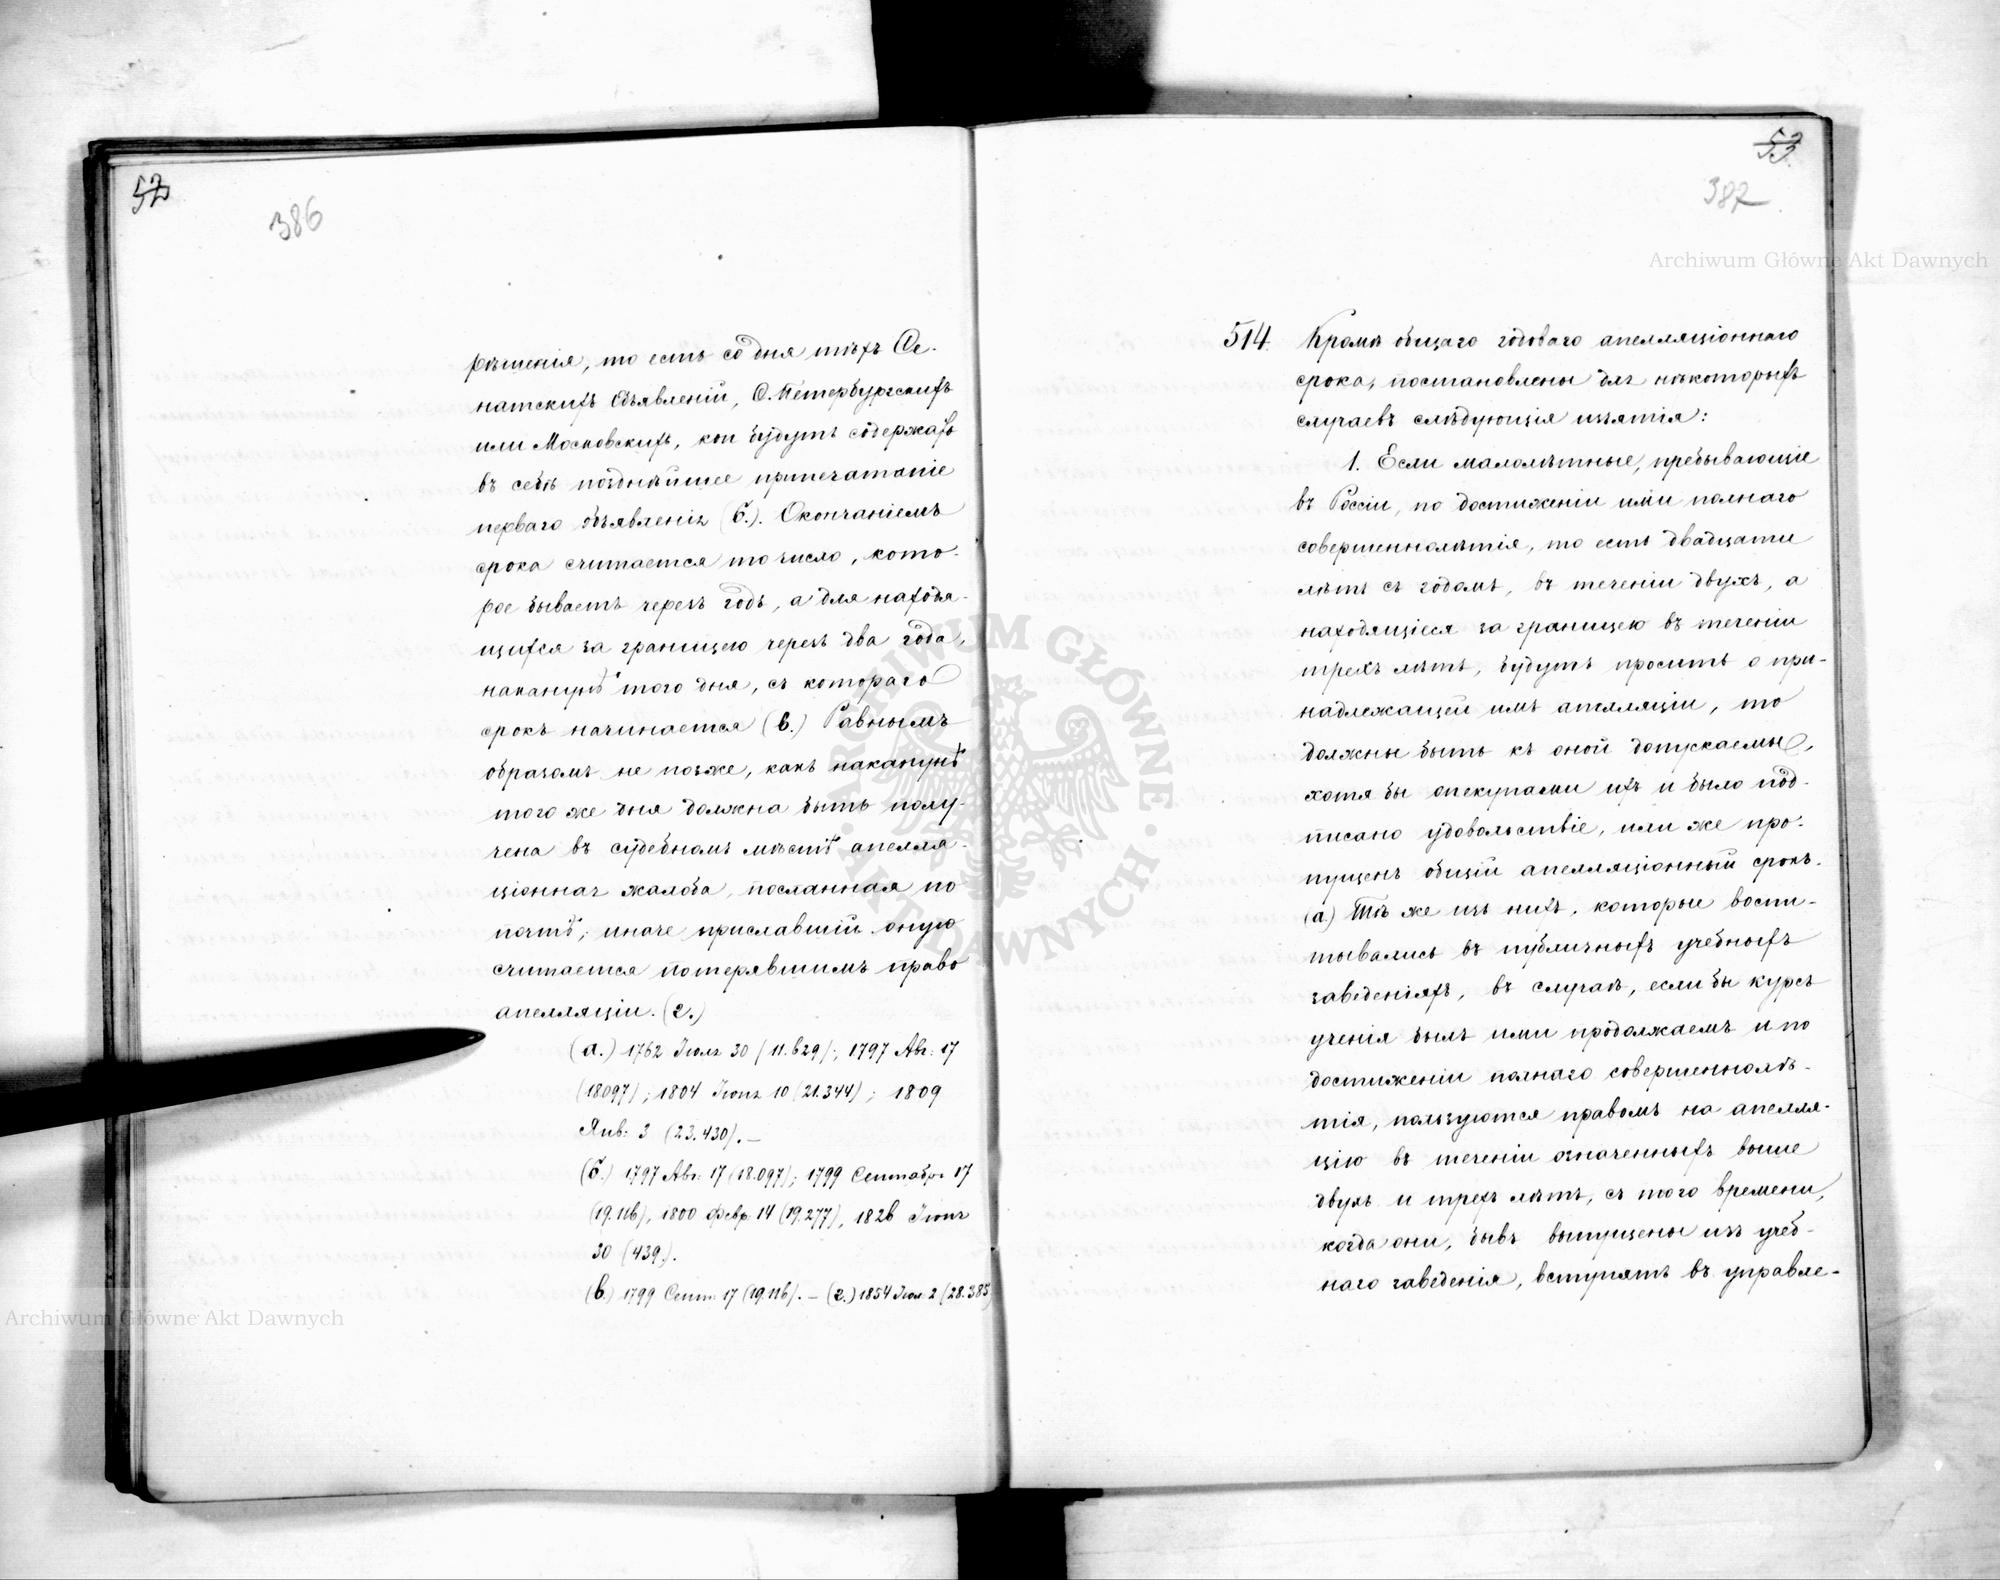 52
386
рѣшенія, то есть со дня тѣхъ Се-
натскихъ Объявленій, С. Петербургскихъ
или Московскихъ, кои будутъ содержать
въ себѣ позднѣйшее припечатаніе
перваго объявленія (б.). Окончаніемъ
срока считается то число, кото-
рое бываетъ черезъ годъ, а для находя-
щихся за границею черезъ два года,
наканунѣ того дня, съ котораго
срокъ начинается (в.) Равнымъ
образомъ не позже, какъ наканунѣ
того же дня должна быть полу-
чена въ судебномъ мѣстѣ апелля-
ціонная жалоба, посланная по
почтѣ; иначе приславшій оную
считается потерявшимъ право
апелляціи. (г.)
(а.) 1762 Іюля 30 (11.629); 1797 Авг: 17
(18.097); 1804 Іюня 10 (21.344); 1809
Янв: 3 (23.430).—
(б.) 1797 Авг: 17 (18.097); 1799 Сентября 17
(19.116), 1800 Февр. 14 (19.277), 1826 Іюня
30 (439.).
(в.) 1799 Сент: 17 (19.116). — (г.) 1854 Іюл: 2 (28.385)
53.
387
514. Кромѣ общаго годоваго апелляціоннаго
срока, постановлены для нѣкоторыхъ
случаевъ слѣдующія изъятія:
1. Если малолѣтные, пребывающіе
въ Россіи, по достиженіи ими полнаго
совершеннолѣтія, то есть двадцати
лѣтъ съ годомъ, въ теченіи двухъ, а
находящіеся за границею въ теченіи
трехъ лѣтъ, будутъ просить о при-
надлежащей имъ апелляціи, то
должны быть къ оной допускаемы,
хотя бы опекунами ихъ и было под-
писано удовольствіе, или же про-
пущенъ общій апелляціонный срокъ.
(а.) Тѣ же изъ нихъ, которые воспи-
тывались въ публичныхъ учебныхъ
заведеніяхъ, въ случаѣ, если бы курсъ
ученія былъ ими продолжаемъ и по
достиженіи полнаго совершеннолѣ-
тія, пользуются правомъ на апелля-
цію въ теченіи означенныхъ выше
двухъ и трехъ лѣтъ, съ того времени,
когда они, бывъ выпущены изъ учеб-
наго заведенія, вступятъ въ управле-
Archiwum Główne Akt Dawnych
Archiwum Główne Akt Dawnych
ARCHIWUM GŁÓWNE · AKT DAWNYCH ·